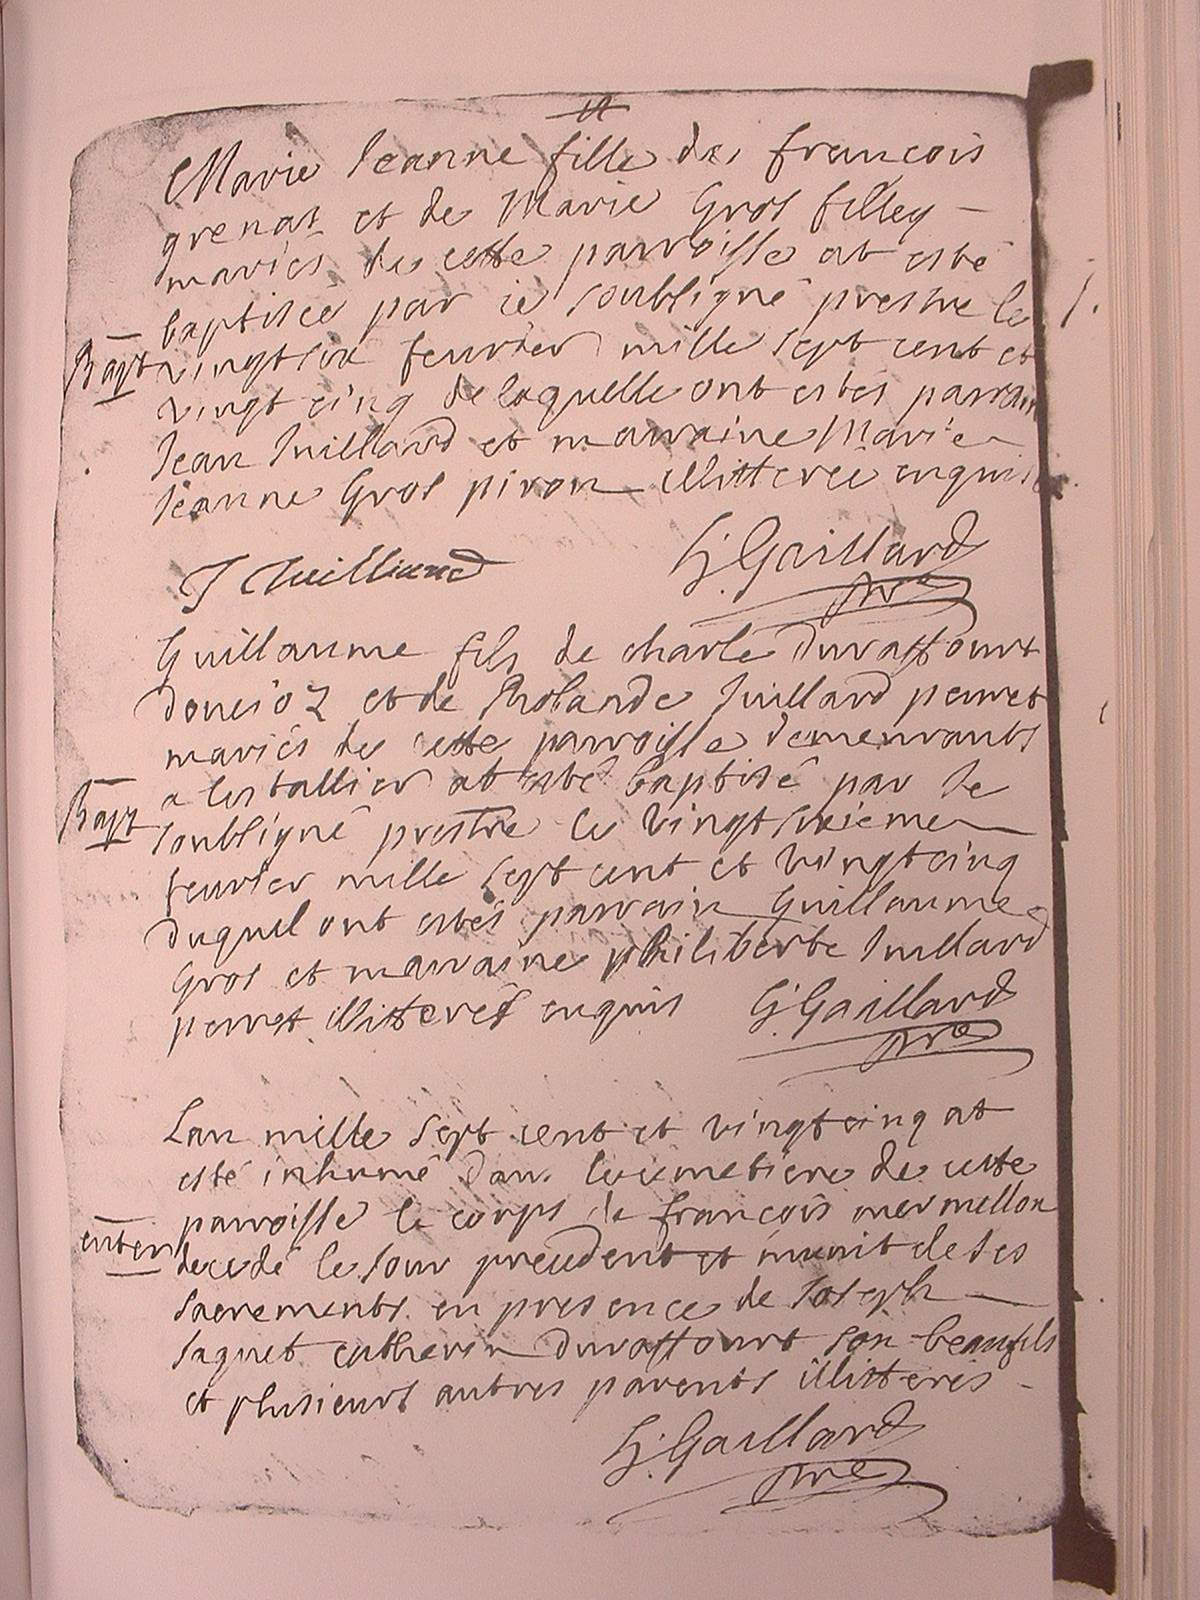 Marie Jeanne fille de francois
grenat et de Marie Gros filley
mariés de cette parroisse at esté
baptisée par ie soubsigné prestre le
Bapt vingt six feurier mille sept cent et
vingt cinq de laquelle ont estés parrain
Jean Juillard et marraine Marie
Jeanne Gros piron illitterée enquis
J Juilliard G. Gaillard
pre
Guillaume fils de charle Duraffourt
doucioz et de Rolande Juillard perret
mariés de cette parroisse demeurants
a lestallier at esté baptisé par Je
Bapt soubsigné prestre le vingt sixieme
feurier mille sept cent et vingt cinq
duquel ont estés parrain Guillaume
Gros et marraine philiberte Juillard
perret illitterés enquis G. Gaillard
pre
Lan mille sept cent et vingt cinq at
esté inhumé dans le cimetiere de cette
parroisse le corps de francois mermellon
enterr decedé le Jour precedent et munit de ses
sacrements en presence de Joseph
Jaquet Duraffourt son beaufils
et plusieurs autres parents illitterés
G. Gaillard
pre